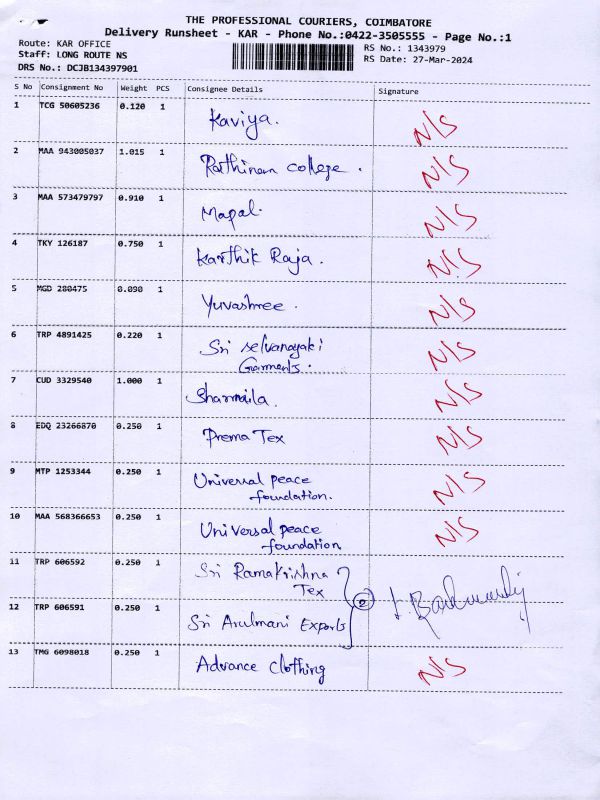 THE PROFESSIONAL COURIERS, COIMBATORE
Delivery Runsheet - KAR - Phone No.:0422-3505555 - Page No.:1
Route: KAR OFFICE RS No.: 1343979
Staff: LONG ROUTE NS RS Date: 27-Mar-2024
DRS No.: DCJB134397901
S No Consignment No Weight PCS Consignee Details Signature
1 TCG 50605236 0.120 1 Kaviya. N/S
2 MAA 943005037 1.015 1 Rathinam college. N/S
3 MAA 573479797 0.910 1 Mapal. N/S
4 TKY 126187 0.750 1 Karthik Raja. N/S
5 MGD 280475 0.090 1 Yuvashree. N/S
6 TRP 4891425 0.220 1 Sri selvanayaki N/S
Garments.
7 CUD 3329540 1.000 1 Sharmila. N/S
8 EDQ 23266870 0.250 1 Prema Tex N/S
9 MTP 1253344 0.250 1 Universal peace N/S
foundation.
10 MAA 568366653 0.250 1 Universal peace N/S
foundation
11 TRP 606592 0.250 1 Sri Ramakrishna
Tex
2
12 TRP 606591 0.250 1 Sri Arulmani Exports
13 TMG 6098018 0.250 1 Advance clothing N/S